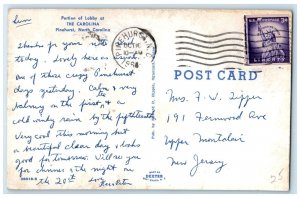 Portion of Lobby at
THE CAROLINA
Pinehurst, North Carolina
Thanks for your note
today. Lovely here
One of those crazy Pinehurst
days yesterday. Calm &
balmy on the first, & a
cold windy rain by the fifteenth.
Very cool this morning but
a beautiful clear day & looks
good for tomorrow. Will see you
for dinner & the night on
the 20th
PINEHURST, N.C.
OCT 16
10 AM
LIBERTY
3¢
POST CARD
Mrs. F. W. Zipper
191 Fernwood Ave
Upper Montclair
New Jersey
DEXTER
25